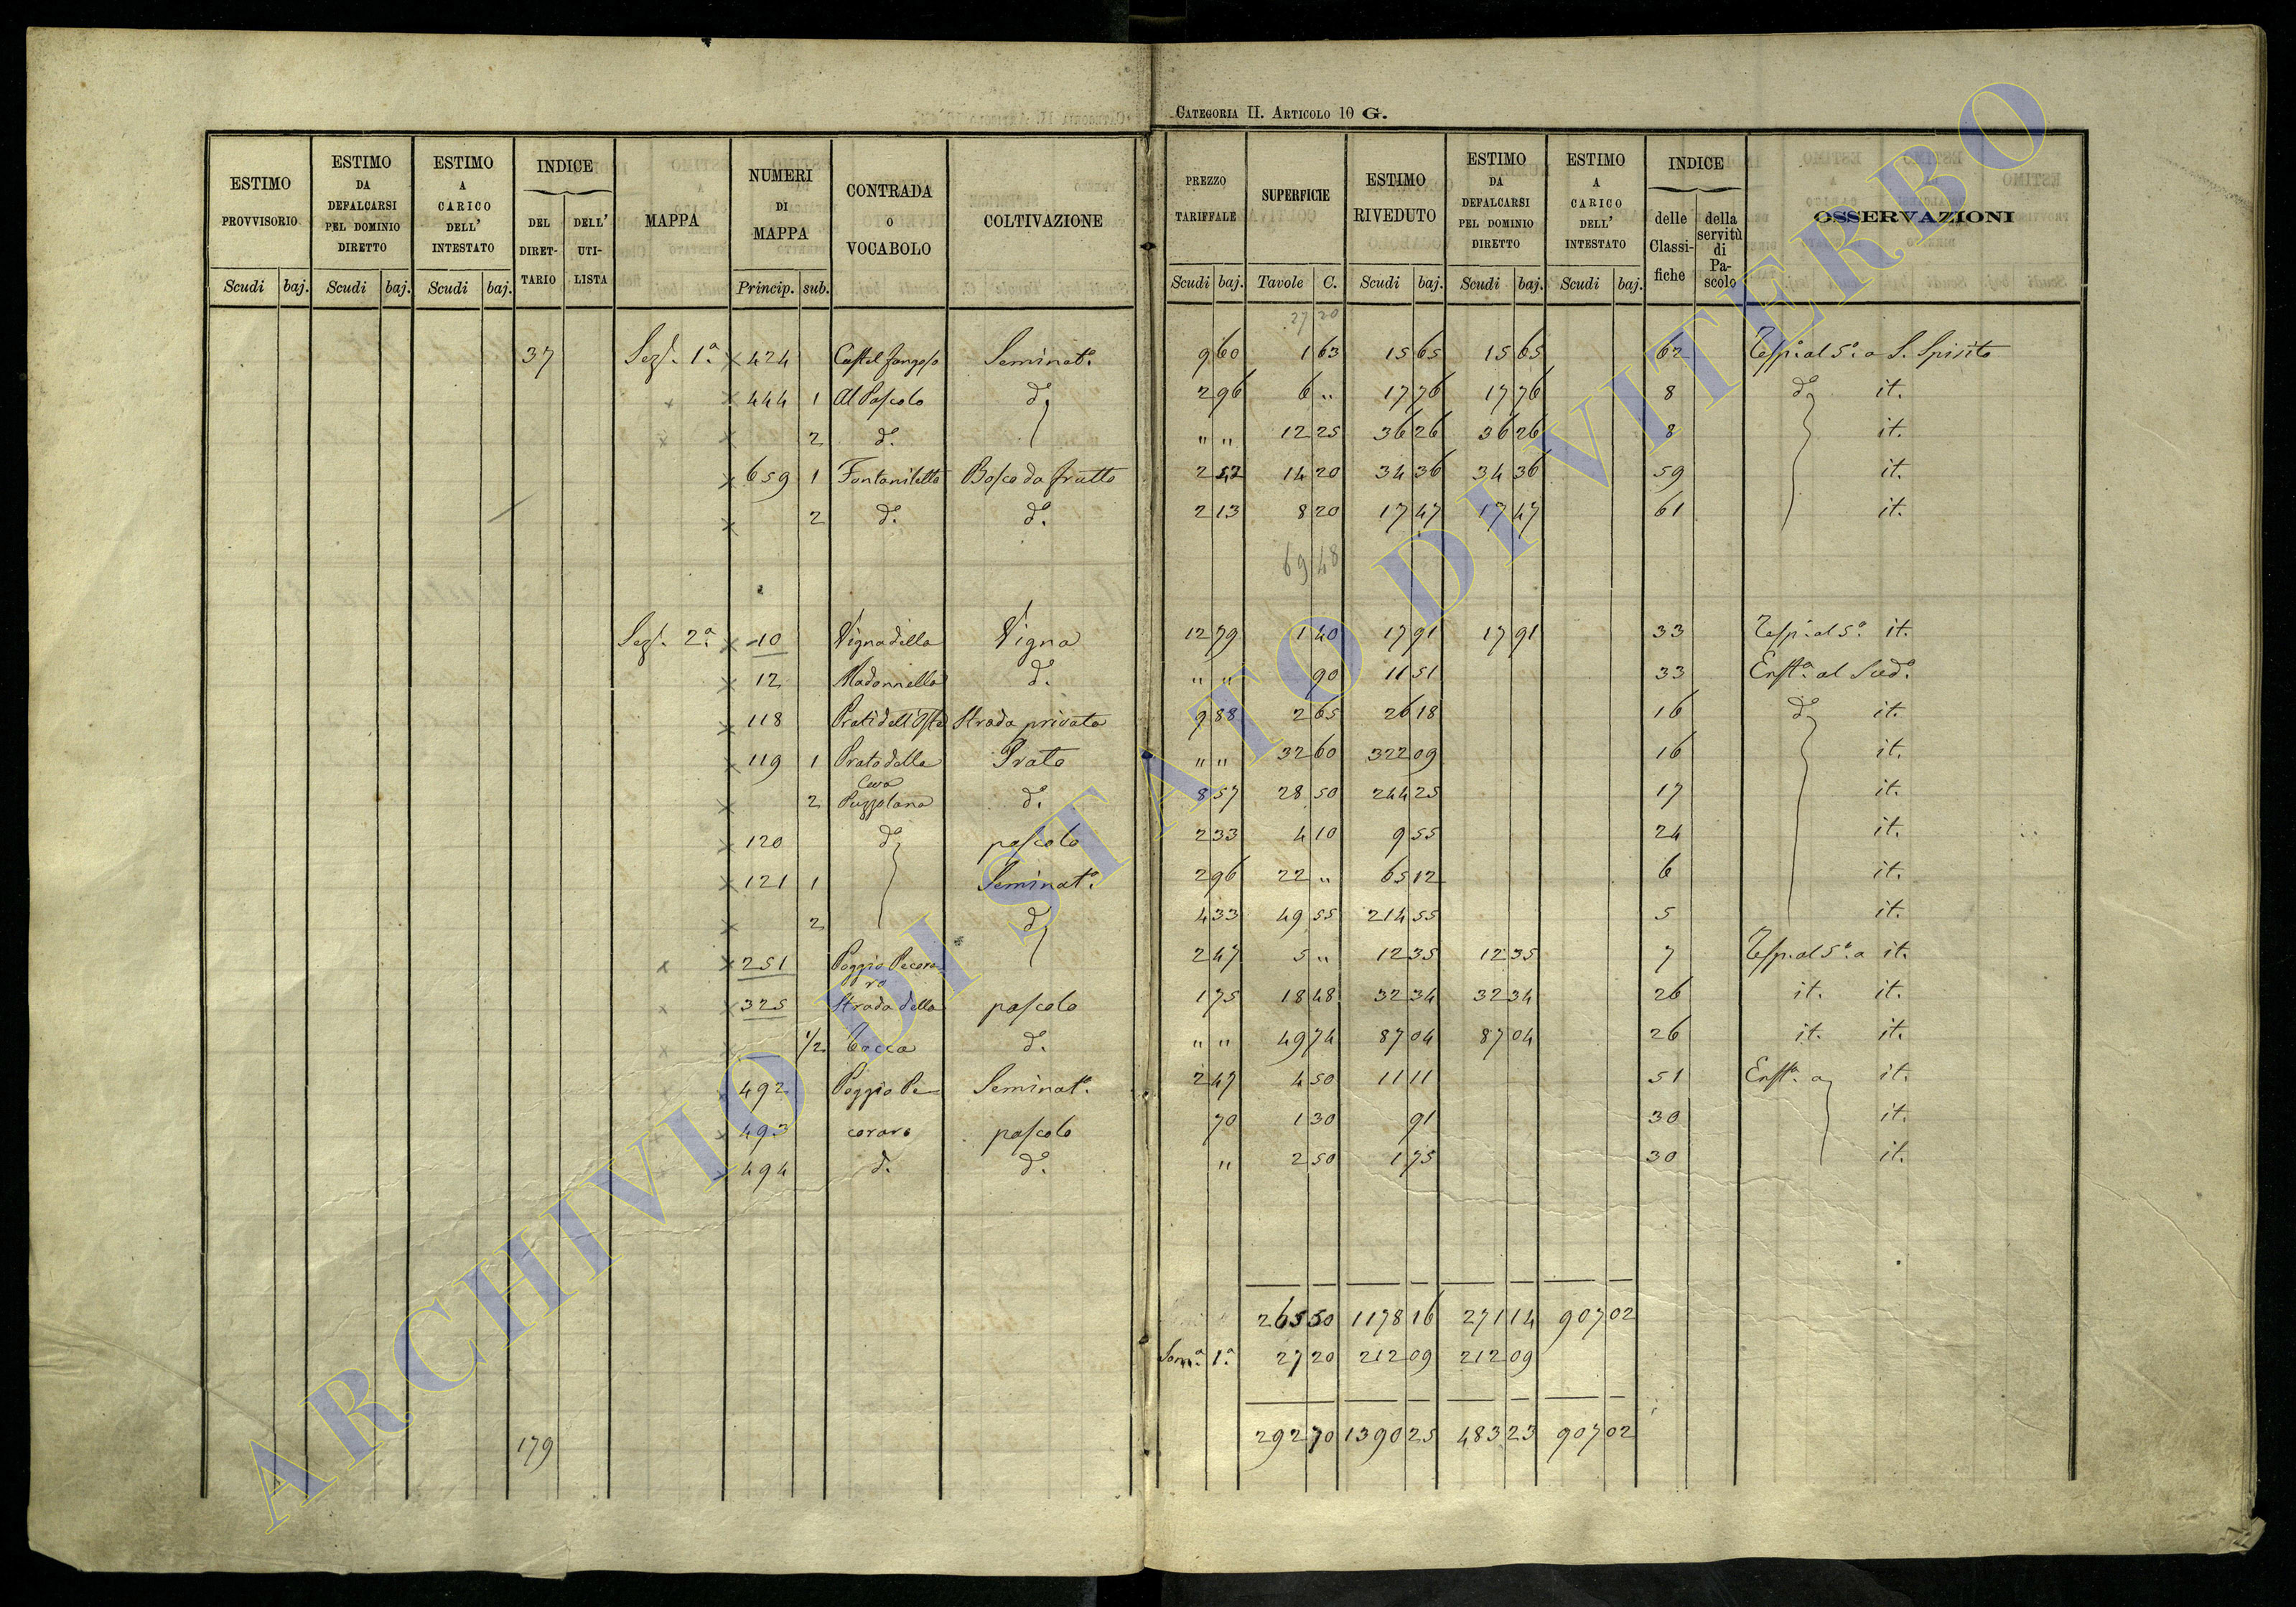 CATEGORIA II. ARTICOLO 10 G.
ESTIMO PROVVISORIO | ESTIMO DA DEFALCARSI PEL DOMINIO DIRETTO | ESTIMO A CARICO DELL' INTESTATO | INDICE | MAPPA | NUMERI DI MAPPA | CONTRADA O VOCABOLO | COLTIVAZIONE | PREZZO TARIFFALE | SUPERFICIE | ESTIMO RIVEDUTO | ESTIMO DA DEFALCARSI PEL DOMINIO DIRETTO | ESTIMO A CARICO DELL' INTESTATO | INDICE | OSSERVAZIONI
DEL DIRET-TARIO | DELL' UTI-LISTA | delle Classi-fiche | della servitù di Pa-scolo
Scudi | baj. | Scudi | baj. | Scudi | baj. | Princip. | sub. | Scudi | baj. | Tavole | C. | Scudi | baj. | Scudi | baj. | Scudi | baj.
27 20
37 Sezⁿ. 1ª. x 424 Castel fangoso Seminatº. 9 60 1 63 15 65 15 65 62 Resp. al 5º. a S. Spirito
x 444 1 Al Pascolo dº 2 96 6 " 17 76 17 76 8 dº it.
x 2 dº. " " 12 25 36 26 36 26 8 it.
x 659 1 Fontaniletto Bosco da frutto 2 42 14 20 34 36 34 36 59 it.
x 2 dº. dº. 2 13 8 20 17 47 17 47 61 it.
69 48
Sezⁿ. 2ª. x 10 Vigna della Vigna 12 79 1 40 17 91 17 91 33 Resp. al 5º. it.
x 12 Madonnella dº. " " 90 11 51 33 Enftª. al Sudº.
x 118 Prati dell'Oste Strada privata 9 88 2 65 26 18 16 dº it.
x 119 1 Prato della Prato " " 32 60 322 09 16 it.
Cava
x 2 Puzzolana dº. 8 57 28 50 244 25 17 it.
x 120 dº pascolo 2 33 4 10 9 55 24 it.
x 121 1 Seminatº. 2 96 22 " 65 12 6 it.
x 2 dº 4 33 49 55 214 55 5 it.
x x 251 Poggio Pecora- 2 47 5 " 12 35 12 35 7 Resp. al 5º. a it.
ro
x x 325 Strada della pascolo 1 75 18 48 32 34 32 34 26 it. it.
x x 1/2 Rocca dº. " " 49 74 87 04 87 04 26 it. it.
x 492 Poggio Pe- Seminatº. 2 47 4 50 11 11 51 Enftª. a it.
x 493 coraro pascolo 70 1 30 91 30 it.
x 494 d. dº. " 2 50 1 75 30 it.
265 50 1178 16 271 14 907 02
Somª. 1ª. 27 20 212 09 212 09
292 70 1390 25 483 23 907 02
179
ARCHIVIO DI STATO DI VITERBO